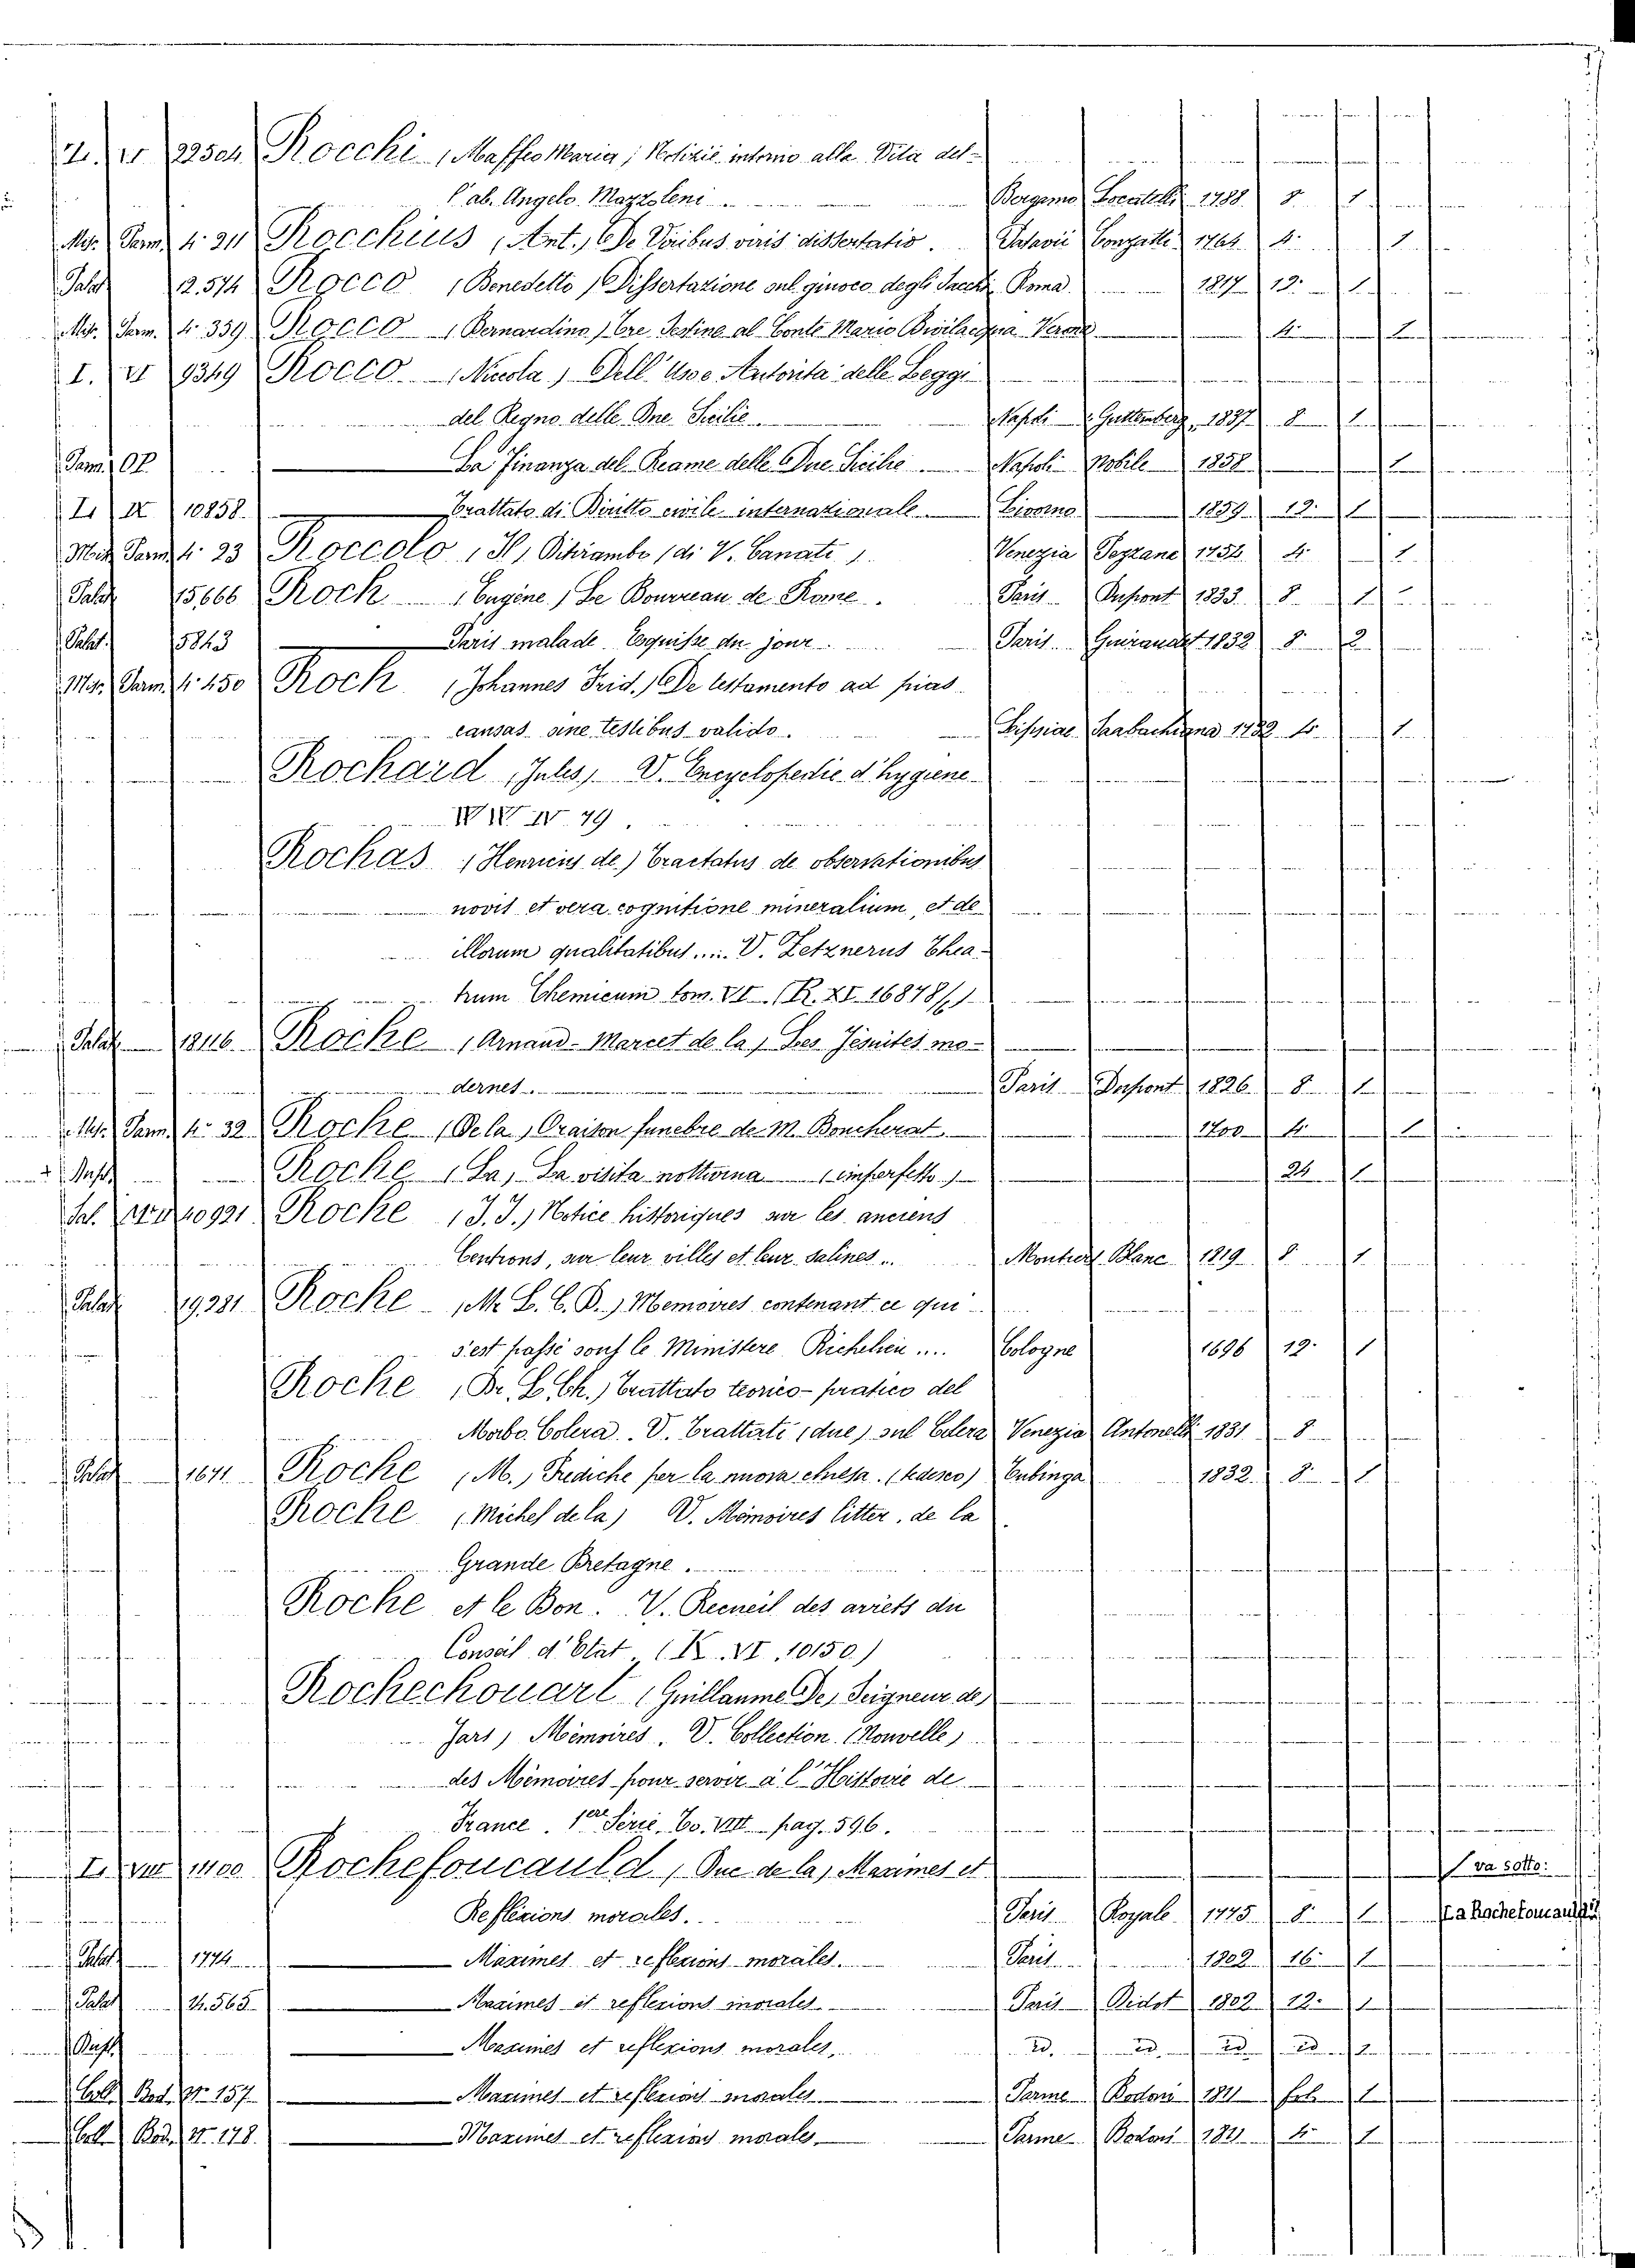 Z. VI 2250a Rocchi (Maffeo Maria) Notizie intorno alla Vita del-
l'ab. Angelo Mazzoleni Bergamo Locatelli 1788 8 1
Mis. Parm. 4. 211 Rocchius (Ant.) De Viribus vivis dissertatio. Patavii Conzatti 1764 4. 1
Palat 12.574 Rocco (Benedetto) Dissertazione sul ginoco degli Sacchi Roma 1817 12. 1
Mis. Parm. 4. 339 Rocco (Bernardino) Tre Sestine al Conte Mario Bevilacqua Verona 4. 1
I. VI 9349 Rocco (Nicola) Dell' Uso e Autorità delle Leggi
del Regno delle Due Sicilie. Napoli Guttemberg 1837 8 1
Parm. OP. La Finanza del Reame delle Due Sicilie. Napoli Nobile 1858 1
I. IX 10858 Trattato di Diritto civile internazionale Livorno 1859 12. 1
Mis. Parm. 4. 23 Roccolo (Il) Ditirambo (di V. Canati) Venezia Pezzana 1754 4. 1
Palat 15,666 Rock (Eugène) Le Bourreau de Rome. Paris Dupont 1833 8 1
Palat. 15843 Paris malade Esquisse du jour Paris. Guiraudet 1832 8 2
Mis. Parm. 4. 450 Rock (Johannes Frid.) De testamento ad pias
causas sine testibus valido. Lipsiae 1722 4. 1
Rochard (Jules) V. Encyclopedie d'hygiene
W IV 79.
Rochas (Henricus de) Tractatus de observationibus
novis et vera cognitione mineralium, et de
illorum qualitatibus.... V. Zetznerus Thea-
trum Chemicum tom. VI. (R. XI. 16878/6)
Palat 18116. Roche (Arnaud-Marcet de la) Les Jésuites mo-
dernes. Paris Dupont 1826 8 1
Mis. Parm. 4. 32 Roche (De la) Oraison funebre de M. Boucherat 1700 4. 1
Roche (La) La visita notturna (imperfetto) 24 1
Sal. 40991 Roche (J. J.) Notice historiques sur les anciens
Centrons, sur leur villes et leur salines Blanc 1819 8 1
Palat 19,281 Roche (M. L. C. D.) Memoires contenant ce qui
s'est passé sous le Ministere Richelieu.... Cologne 1696 12. 1
Roche (Dr. L. Ch.) Trattato teorico-pratico del
Morbo Colera. V. Trattati (due) sul Colera Venezia Antonelli 1831 8
Palat 1671 Roche (M.) Prediche per la nuova chiesa. (tedesco) Tubinga 1832. 8. 1
Roche (Michel de la) V. Mémoires litter. de la
Grande Bretagne.
Roche et le Bon. V. Recueil des arrets du
Conseil d'Etat. (K. VI. 10150.)
Rochechouart (Guillaume De, Seigneur de
Jars) Mémoires. V. Collection (Nouvelle)
des Mémoires pour servir à l'Histoire de
France. 1ere Serie. To. VIII pag. 596.
I. VIII 1400 Rochefoucauld (Duc de la) Maximes et va sotto:
Reflexions morales. Paris Royale 1775 8. 1 La Rochefoucauld
Palat 1774 Maximes et reflexions morales. Paris 1802 16. 1
Palat 14.565 Maximes et reflexions morales Paris Didot 1802 12. 1
Maximes et reflexions morales. id. id. id id 2
Coll. Bod. N. 157 Maximes et reflexions morales Parme Bodoni 1811 fol. 1
Coll. Bod. N. 178. Maximes et reflexions morales Parme Bodoni 1811 4. 1